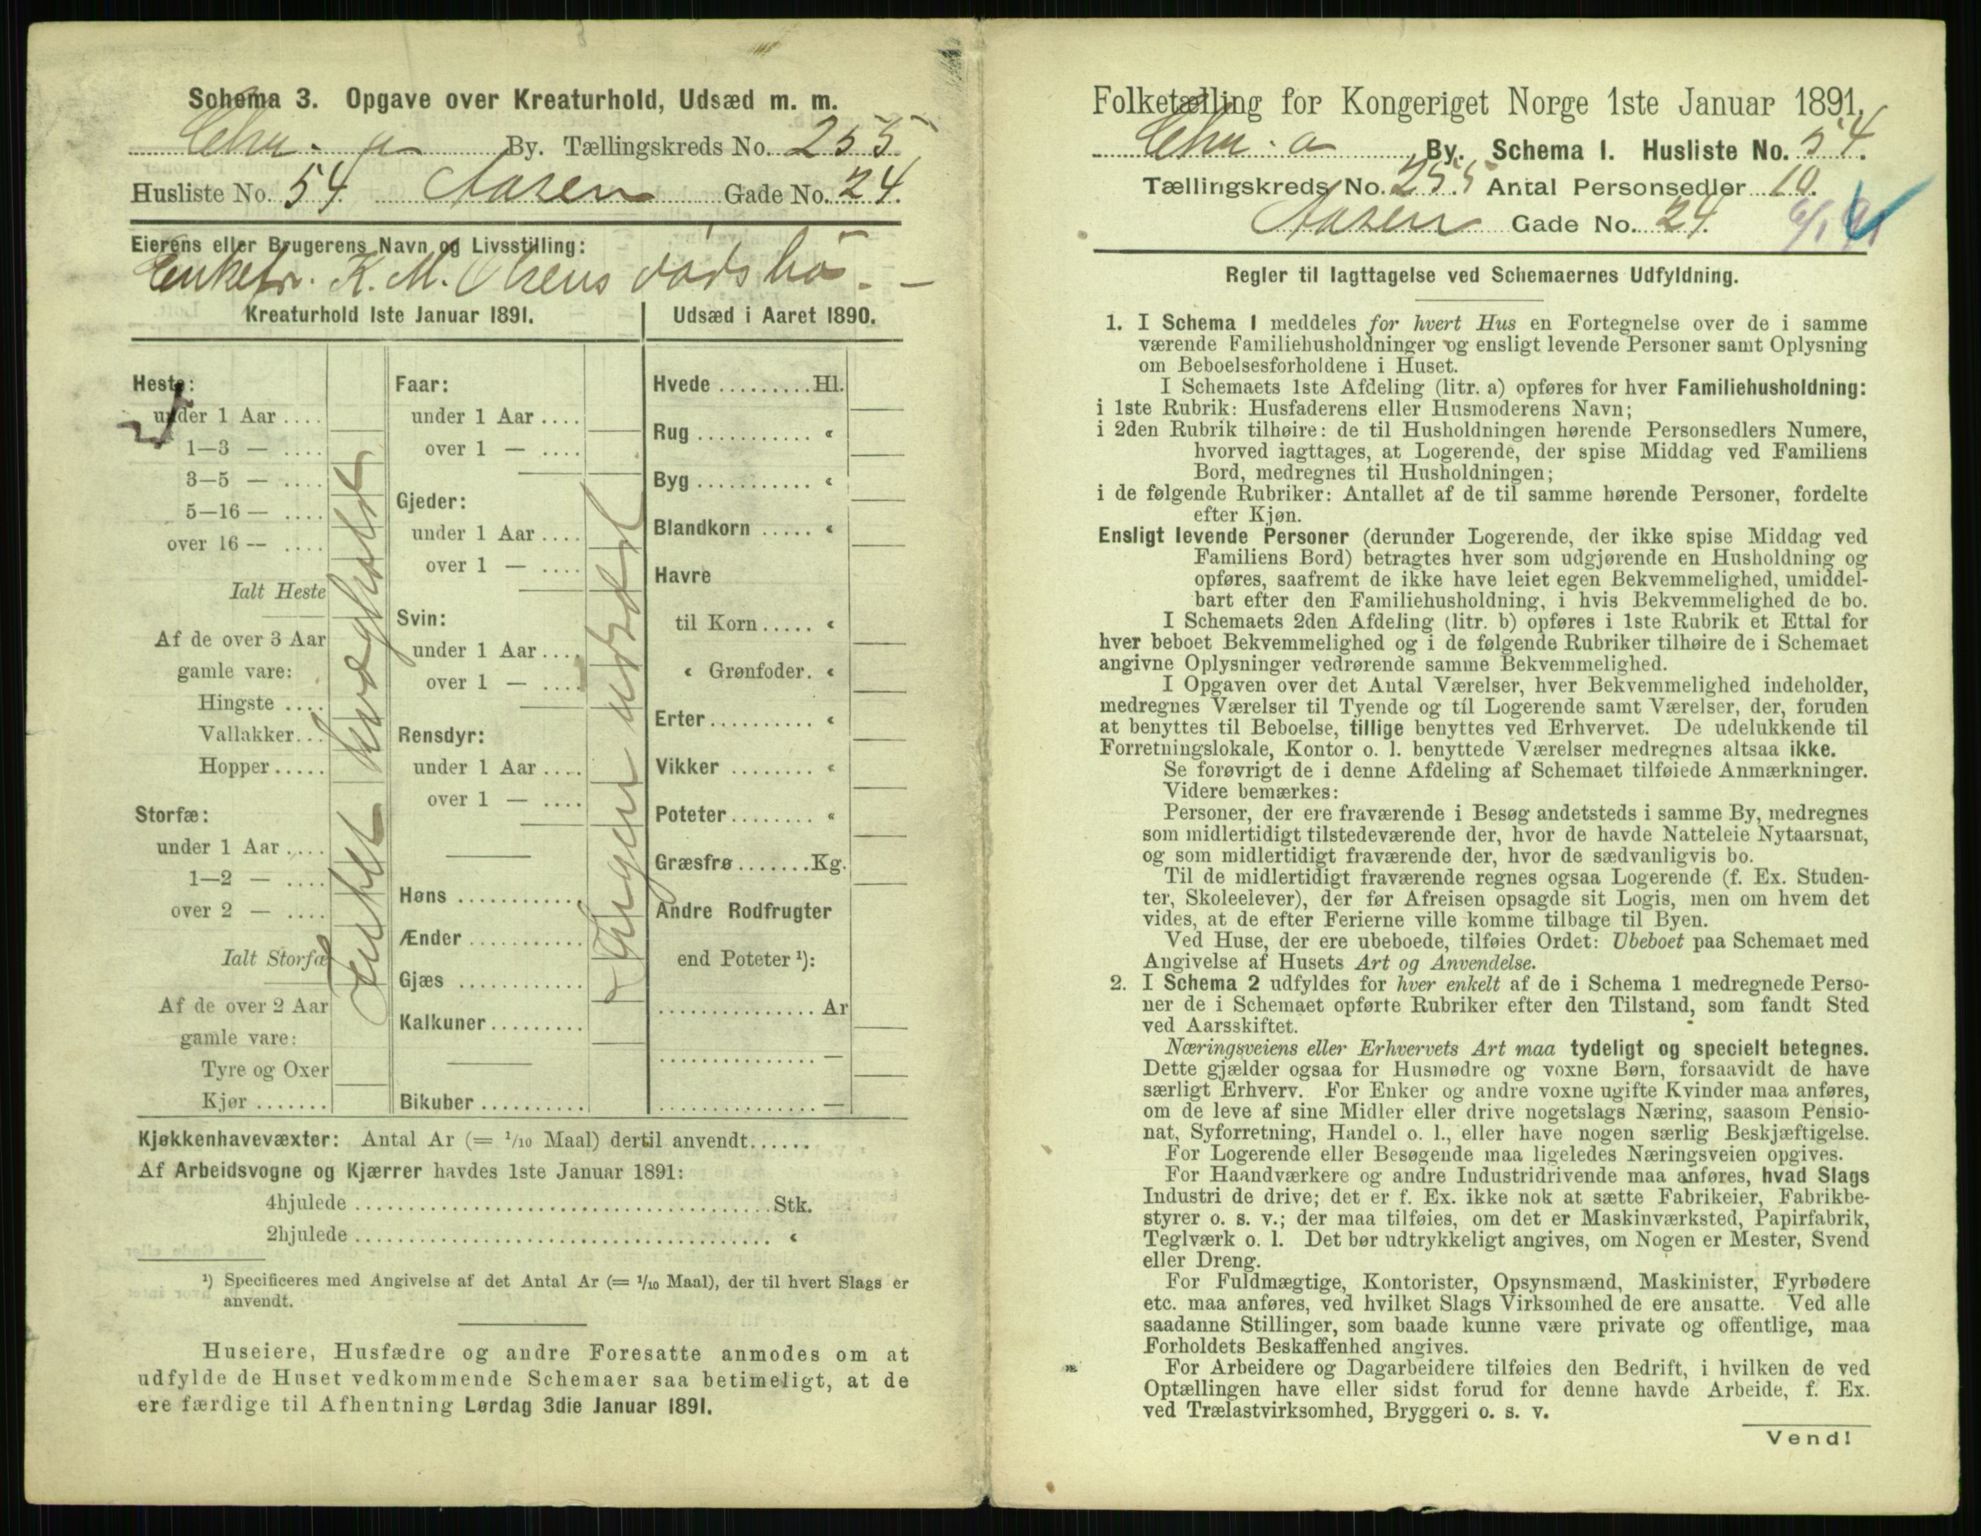 Schema 3. Opgave over Kreaturhold, Udsæd m. m.
Chr. a By. Tællingskreds No. 255
Husliste No. 54 Aasen Gade No. 24.
Eierens eller Brugerens Navn og Livsstilling:
Enkefr. K. M. Olsens dødsbo. —
Kreaturhold 1ste Januar 1891.
Heste:
under 1 Aar ....
1—3 — ....
3—5 — ....
5—16 — ....
over 16 — ....
Ialt Heste
Af de over 3 Aar
gamle vare:
Hingste ....
Vallakker...
Hopper.....
Storfæ:
under 1 Aar ....
1—2 — ....
over 2 — ....
Ialt Storfæ
Af de over 2 Aar
gamle vare:
Tyre og Oxer
Kjør .......
Faar:
under 1 Aar ....
over 1 — ....
Gjeder:
under 1 Aar ....
over 1 — ....
Svin:
under 1 Aar ....
over 1 — ....
Rensdyr:
under 1 Aar ....
over 1 — ....
Høns ............
Ænder ...........
Gjæs ............
Kalkuner.........
Bikuber ..........
Ingen udsæd
Udsæd i Aaret 1890.
Hvede .........Hl.
Rug ........... «
Byg ........... «
Blandkorn ..... «
Havre
til Korn ..... «
« Grønfoder. «
Erter.......... «
Vikker ........ «
Poteter........ «
Græsfrø .......Kg.
Andre Rodfrugter
end Poteter ¹):
............... Ar
............... —
............... —
Kjøkkenhavevæxter: Antal Ar (= 1/10 Maal) dertil anvendt......
Af Arbeidsvogne og Kjærrer havdes 1ste Januar 1891:
4hjulede ....................................... Stk.
2hjulede ....................................... «
¹) Specificeres med Angivelse af det Antal Ar (= 1/10 Maal), der til hvert Slags er
anvendt.
Huseiere, Husfædre og andre Foresatte anmodes om at
udfylde de Huset vedkommende Schemaer saa betimeligt, at de
ere færdige til Afhentning Lørdag 3die Januar 1891.
Folketælling for Kongeriget Norge 1ste Januar 1891.
Chr. a By. Schema I. Husliste No. 54.
Tællingskreds No. 255 Antal Personsedler 10.
Aasen Gade No. 24.
Regler til Iagttagelse ved Schemaernes Udfyldning.
1. I Schema 1 meddeles for hvert Hus en Fortegnelse over de i samme
værende Familiehusholdninger og ensligt levende Personer samt Oplysning
om Beboelsesforholdene i Huset.
I Schemaets 1ste Afdeling (litr. a) opføres for hver Familiehusholdning:
i 1ste Rubrik: Husfaderens eller Husmoderens Navn;
i 2den Rubrik tilhøire: de til Husholdningen hørende Personsedlers Numere,
hvorved iagttages, at Logerende, der spise Middag ved Familiens
Bord, medregnes til Husholdningen;
i de følgende Rubriker: Antallet af de til samme hørende Personer, fordelte
efter Kjøn.
Ensligt levende Personer (derunder Logerende, der ikke spise Middag ved
Familiens Bord) betragtes hver som udgjørende en Husholdning og
opføres, saafremt de ikke have leiet egen Bekvemmelighed, umiddel-
bart efter den Familiehusholdning, i hvis Bekvemmelighed de bo.
I Schemaets 2den Afdeling (litr. b) opføres i 1ste Rubrik et Ettal for
hver beboet Bekvemmelighed og i de følgende Rubriker tilhøire de i Schemaet
angivne Oplysninger vedrørende samme Bekvemmelighed.
I Opgaven over det Antal Værelser, hver Bekvemmelighed indeholder,
medregnes Værelser til Tyende og til Logerende samt Værelser, der, foruden
at benyttes til Beboelse, tillige benyttes ved Erhvervet. De udelukkende til
Forretningslokale, Kontor o. l. benyttede Værelser medregnes altsaa ikke.
Se forøvrigt de i denne Afdeling af Schemaet tilføiede Anmærkninger.
Videre bemærkes:
Personer, der ere fraværende i Besøg andetsteds i samme By, medregnes
som midlertidigt tilstedeværende der, hvor de havde Natteleie Nytaarsnat,
og som midlertidigt fraværende der, hvor de sædvanligvis bo.
Til de midlertidigt fraværende regnes ogsaa Logerende (f. Ex. Studen-
ter, Skoleelever), der før Afreisen opsagde sit Logis, men om hvem det
vides, at de efter Ferierne ville komme tilbage til Byen.
Ved Huse, der ere ubeboede, tilføies Ordet: Ubeboet paa Schemaet med
Angivelse af Husets Art og Anvendelse.
2. I Schema 2 udfyldes for hver enkelt af de i Schema 1 medregnede Perso-
ner de i Schemaet opførte Rubriker efter den Tilstand, som fandt Sted
ved Aarsskiftet.
Næringsveiens eller Erhvervets Art maa tydeligt og specielt betegnes.
Dette gjælder ogsaa for Husmødre og voxne Børn, forsaavidt de have
særligt Erhverv. For Enker og andre voxne ugifte Kvinder maa anføres,
om de leve af sine Midler eller drive nogetslags Næring, saasom Pensio-
nat, Syforretning, Handel o. l., eller have nogen særlig Beskjæftigelse.
For Logerende eller Besøgende maa ligeledes Næringsveien opgives.
For Haandværkere og andre Industridrivende maa anføres, hvad Slags
Industri de drive; det er f. Ex. ikke nok at sætte Fabrikeier, Fabrikbe-
styrer o. s. v.; der maa tilføies, om det er Maskinværksted, Papirfabrik,
Teglværk o. l. Det bør udtrykkeligt angives, om Nogen er Mester, Svend
eller Dreng.
For Fuldmægtige, Kontorister, Opsynsmænd, Maskinister, Fyrbødere
etc. maa anføres, ved hvilket Slags Virksomhed de ere ansatte. Ved alle
saadanne Stillinger, som baade kunne være private og offentlige, maa
Forholdets Beskaffenhed angives.
For Arbeidere og Dagarbeidere tilføies den Bedrift, i hvilken de ved
Optællingen have eller sidst forud for denne havde Arbeide, f. Ex.
ved Trælastvirksomhed, Bryggeri o. s. v.
Vend!